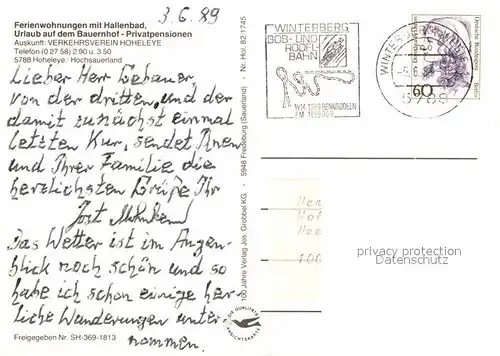 3.6.89
Ferienwohnungen mit Hallenbad,
Urlaub auf dem Bauernhof - Privatpensionen
Auskunft: VERKEHRSVEREIN HOHELEYE
Telefon (0 27 58) 2 90 u. 3 50
5788 Hoheleye / Hochsauerland
Lieber Herr Gebauer,
von der dritten, und der
damit zunächst einmal
letzten Kur, sendet Ihnen
und Ihrer Familie die
herzlichsten Grüße Ihr
Jost
Das Wetter ist im Augen-
blick noch schön und so
habe ich schon einige herr-
liche Wanderungen unter-
nommen.
Freigegeben Nr. SH-369-1813
100 Jahre Verlag Jos. Grobbel KG - 5948 Fredeburg (Sauerland) - Nr. Hol. 82/1745
DIE QUALITÄTS
ANSICHTSKARTE
WINTERBERG
BOB- UND
RODEL-
BAHN
WINTERBERG
6.89
5788
60
Deutsche Bundespost
Berlin
Her
Hol
Hee
100
privacy protection
Datenschutz